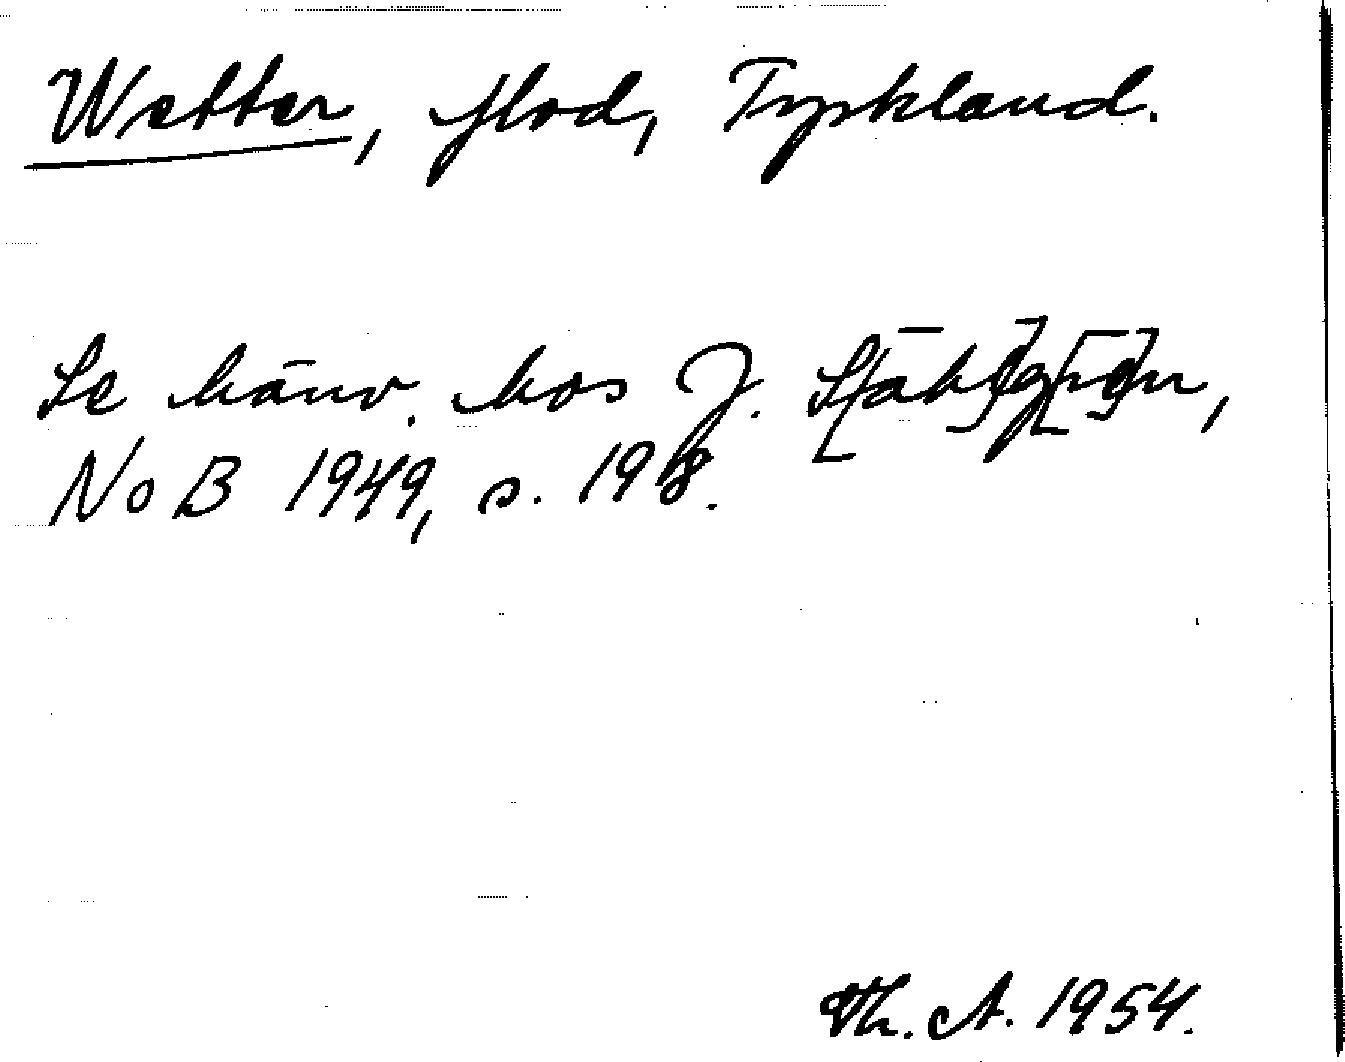 Wetter, flod, Tyskland.
Se hänv. hos J. S[tåh]l[gr[e]n,
NoB 1949, s. 198.
Th. A. 1954.